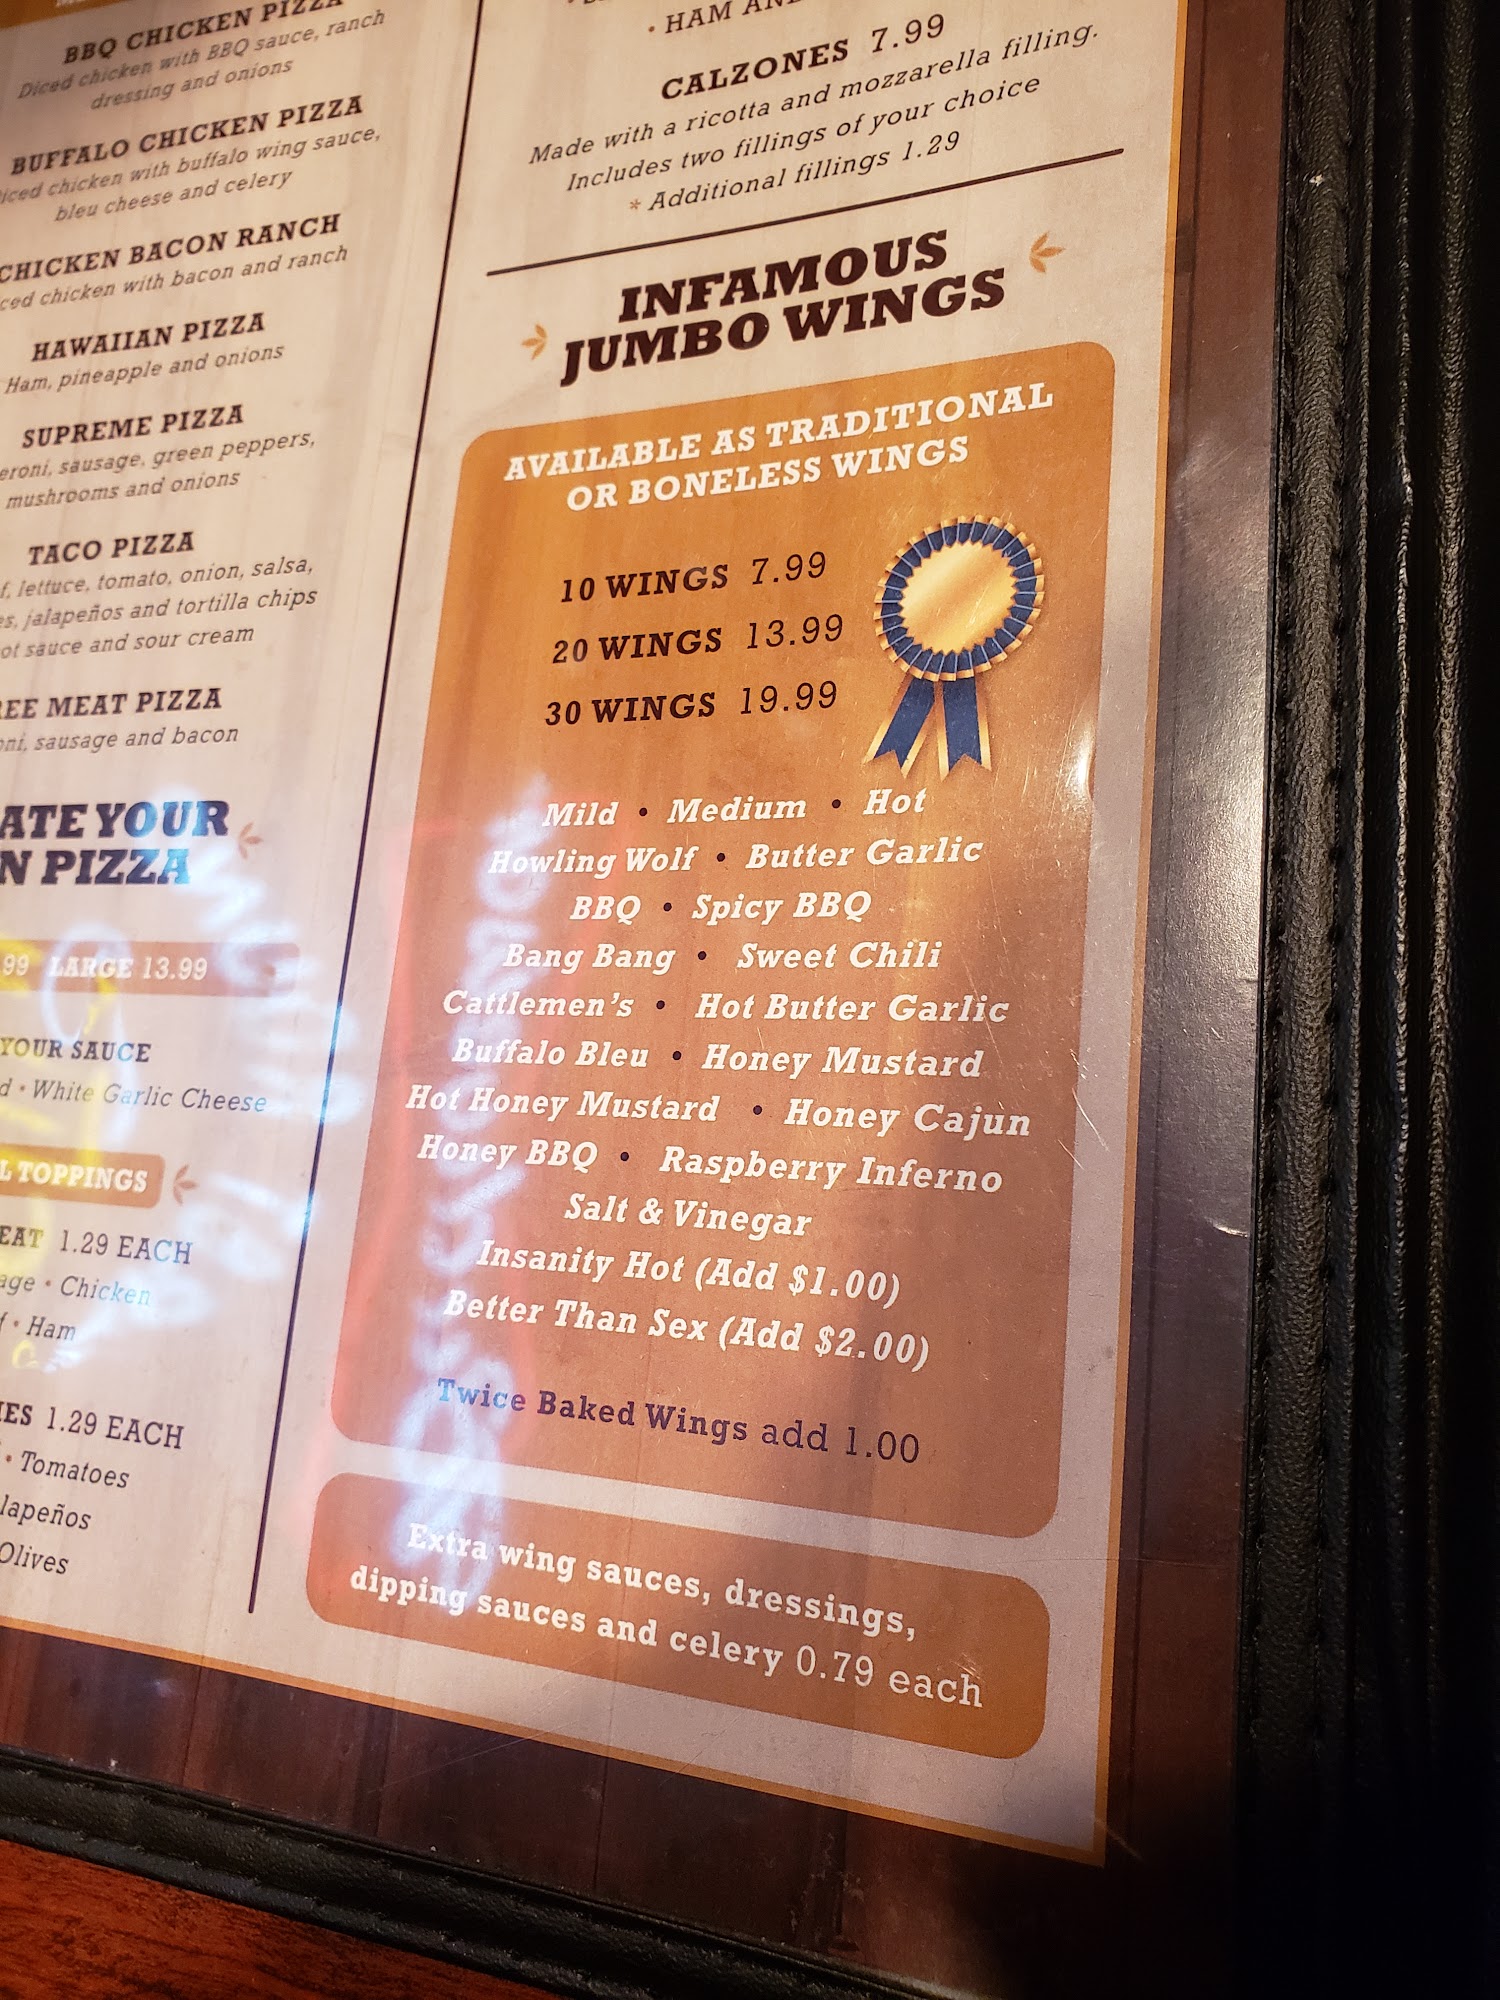 BBQ CHICKEN PIZZA
Diced chicken with BBQ sauce, ranch
dressing and onions
BUFFALO CHICKEN PIZZA
iced chicken with buffalo wing sauce,
bleu cheese and celery
CHICKEN BACON RANCH
ced chicken with bacon and ranch
HAWAIIAN PIZZA
Ham, pineapple and onions
SUPREME PIZZA
eroni, sausage, green peppers,
mushrooms and onions
TACO PIZZA
f, lettuce, tomato, onion, salsa,
es, jalapeños and tortilla chips
ot sauce and sour cream
REE MEAT PIZZA
oni, sausage and bacon
ATE YOUR
N PIZZA
99 LARGE 13.99
YOUR SAUCE
d • White Garlic Cheese
L TOPPINGS
EAT 1.29 EACH
age • Chicken
f • Ham
IES 1.29 EACH
• Tomatoes
lapeños
Olives
• HAM AN
CALZONES 7.99
Made with a ricotta and mozzarella filling.
Includes two fillings of your choice
* Additional fillings 1.29
INFAMOUS
JUMBO WINGS
AVAILABLE AS TRADITIONAL
OR BONELESS WINGS
10 WINGS 7.99
20 WINGS 13.99
30 WINGS 19.99
Mild • Medium • Hot
Howling Wolf • Butter Garlic
BBQ • Spicy BBQ
Bang Bang • Sweet Chili
Cattlemen's • Hot Butter Garlic
Buffalo Bleu • Honey Mustard
Hot Honey Mustard • Honey Cajun
Honey BBQ • Raspberry Inferno
Salt & Vinegar
Insanity Hot (Add $1.00)
Better Than Sex (Add $2.00)
Twice Baked Wings add 1.00
Extra wing sauces, dressings,
dipping sauces and celery 0.79 each